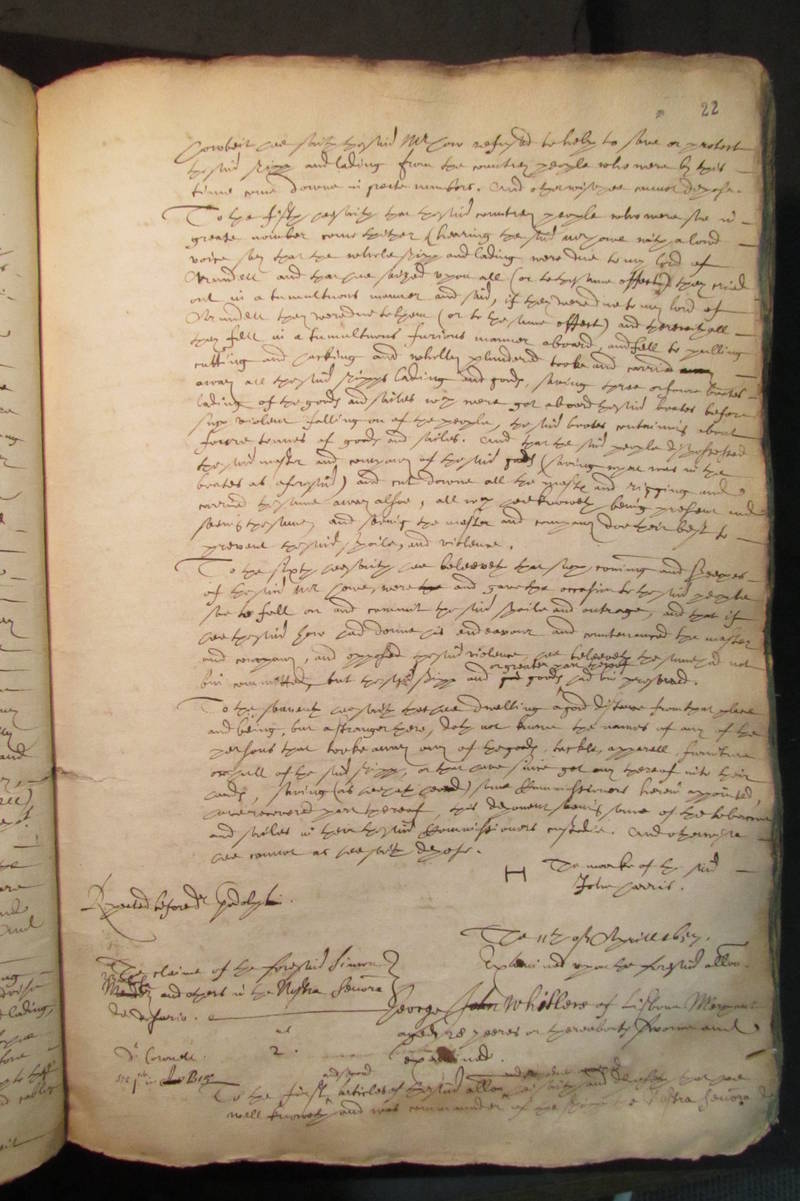 22
howbeit hee saith the said Mr How refused to help to save or protect
the said shipp and lading from the countrey people who were by this
time come downe in greate numbers. And otherwise hee cannot depose.
To the fifth hee saith that the said countrey people who were soe in
greate number come thither (hearing the said Mr Howe with a loud
voice say that the whole shipp and lading were due to my lord of
Arundell and that hee seized upon all (or to the same effect)) they cried
out in a tumultuous manner and said, if they were due to my lord of
Arundell they were due to them (or to the same effect) and therewithall
they fell in a tumultuous furious manner aboard, and fell to pulling
cutting and hacking and wholly plundered tooke and carried
away all the said shipps lading and goods, saving three or foure boates
lading of the goods and which were got aboard the said boates before
such violent falling on of the people, the said boates containing about
foure tonnes of goods and. And that the said people dispossessed
the said master and company of the said goods (saving what was in the
boates as aforesaid) and cut downe all the masts and rigging and
carried the same away alsoe, all which hee knoweth being present and
seeing the same, and seeing the master and company doe their best to
prevent the said spoile, and violence.
To the sixth hee saith hee beleeveth that such coming and
of the said Mr Howe, were and gave the occasion to the said people
soe to fall on and commit the said spoile and outrage, and that if
hee the said How had donne his endeavour and countenanced the master
and company, and opposed the said violence, hee beleeveth the same had not
bin committed, but the said shipp and goods or greater part thereof had bin preserved.
To the seaventh hee saith that hee dwelling a good distance from that place
and being but a stranger there, doth not know the names of any of the
persons that tooke away any of the goods, tackle, apparell, furniture
or hull of the said shipp, or that have since got any thereof into their
hands, saving (as hee hath heard) some Commissioners herein appointed,
have recovered part thereof, this deponent seeing some of the tobaccoe
and in the said Commissioners custodie. And otherwise
hee cannot as hee saith depose.
H The marke of the said
John Harris.
Repeated before dr Godolphin.
The 11th of Aprill 1657.
Examined upon the foresaid allon.
The claime of the foresaid Simon
Mendez and others in the Nostra Senora
de
George John Whitlers of Lisbone Merchant
aged 28 yeeres or thereabouts sworne and
examined.
2.
To the first and second articles of the said allon hee saith and deposeth that hee
well knoweth and was commander of the shipp the Nostra Senora de